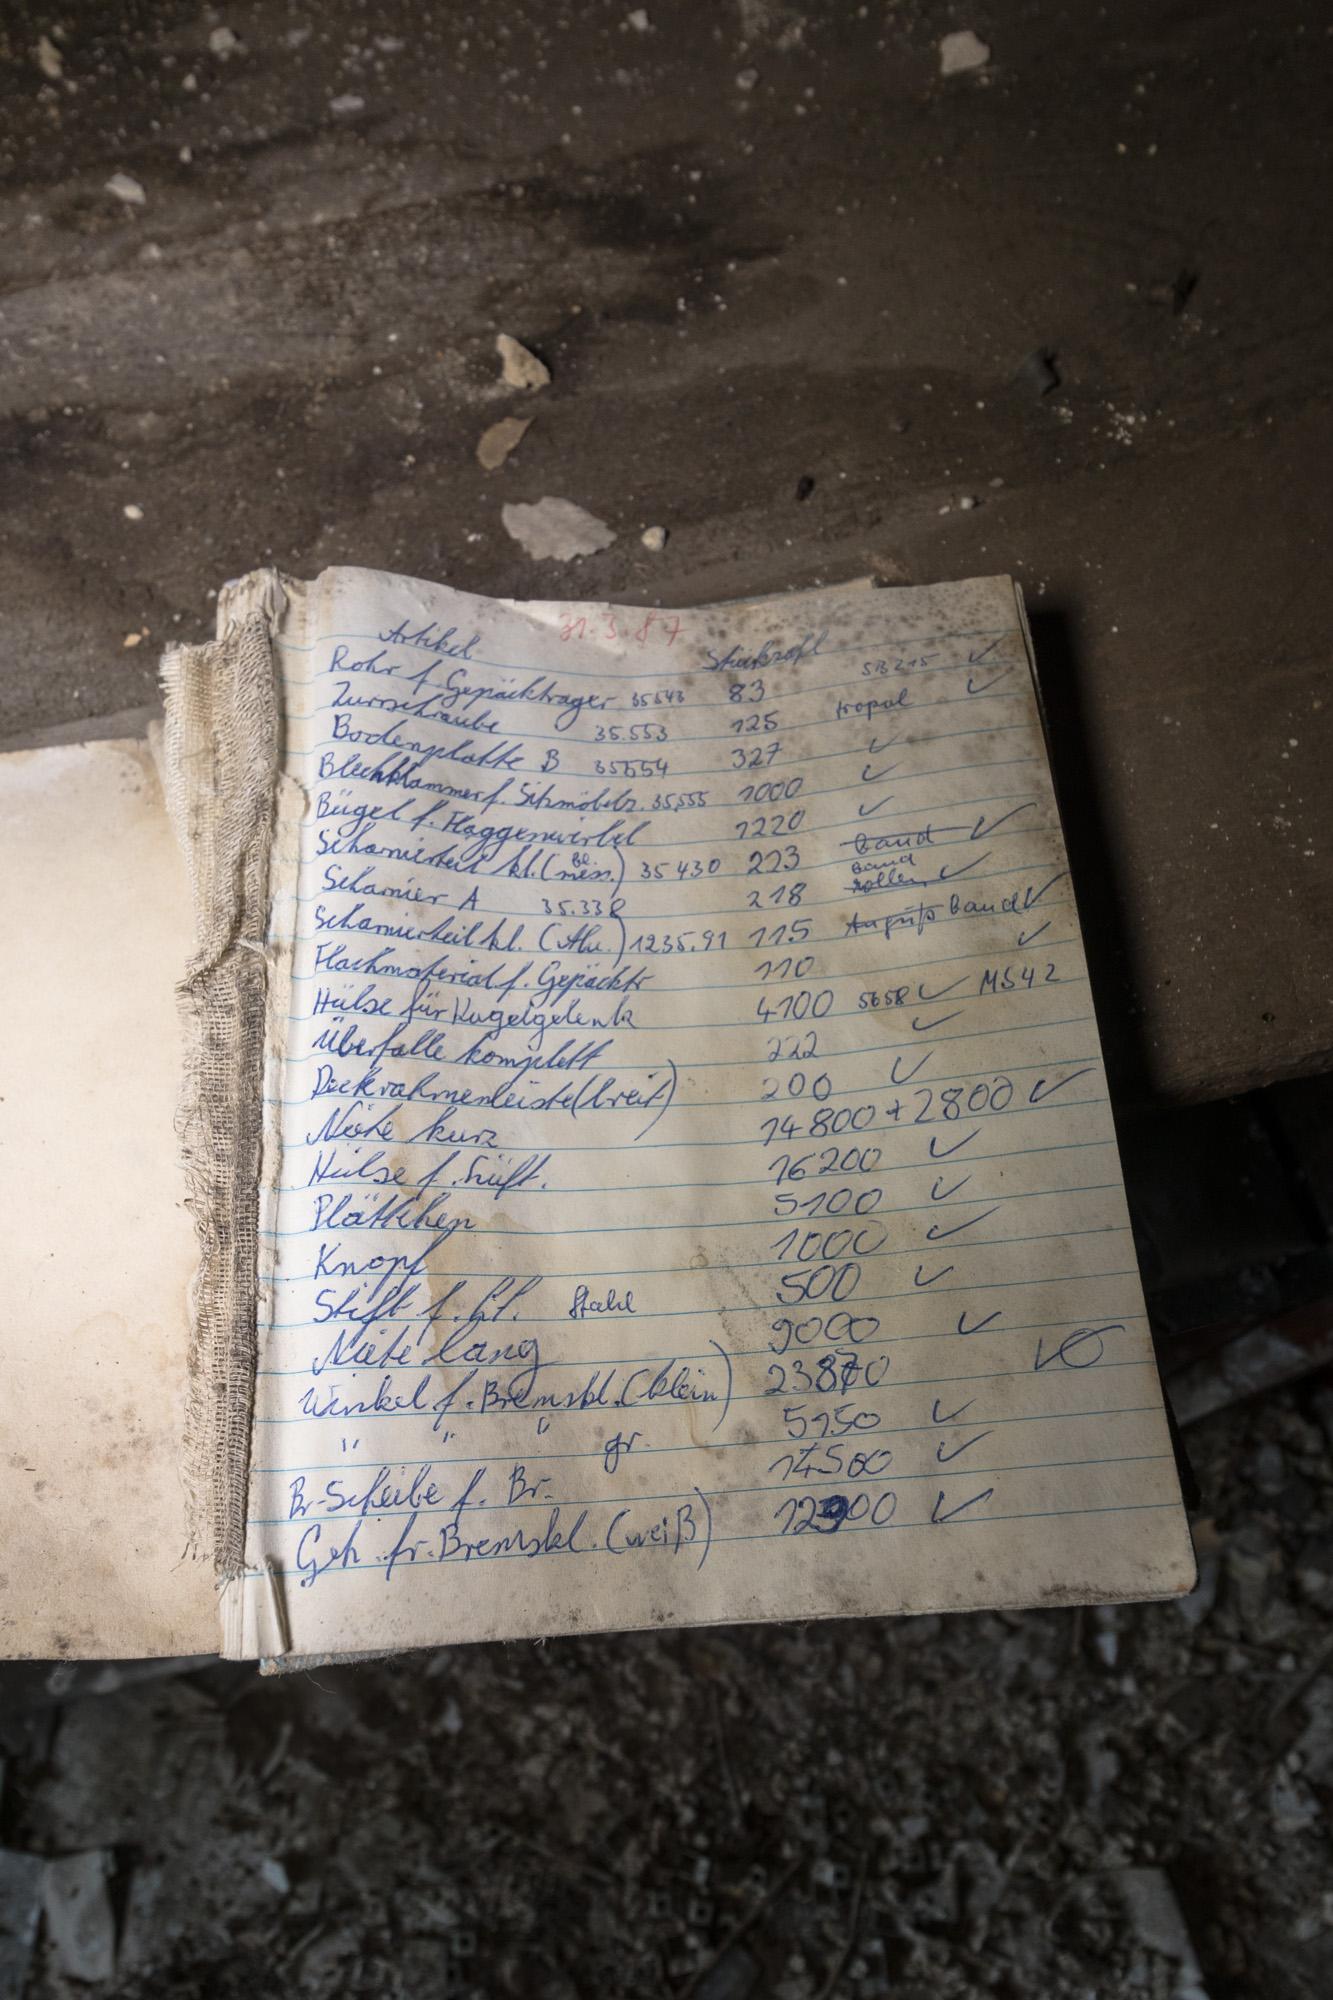 31.3.87
Artikel Stückzahl
Rohr f. Gepäckträger 35543 83 SB215 ✓
Zurrschraube 35.553 125 tropal ✓
Bodenplatte B 35554 327 ✓
Blechklammer f. Sitzmöbelz. 35,555 1000 ✓
Bügel f. Flaggenwirbel 1220 ✓
Scharnierteil kl. (mess.) 35430 223 band ✓
Scharnier A 35.338 218 band rollen ✓
Scharnierteil kl. (Alu.) 1235.91 115 Anguß band ✓
Flachmaterial f. Gepäcktr 110 ✓
Hülse für Kugelgelenk 4100 5658 ✓ MS42
Überfalle komplett 222 ✓
Deckrahmenleiste (breit) 200 ✓
Niete kurz 14800 + 2800 ✓
Hülse f. 16200 ✓
Plättchen 5100 ✓
Knopf 1000 ✓
Stift f. Stahl 500 ✓
Niete lang 9000 ✓
Winkel f. Bremskl. (klein) 23870 ✓
" " " gr. 5150 ✓
Br-Scheibe f. Br- 14500 ✓
Geh. fr. Bremskl. (weiß) 12900 ✓